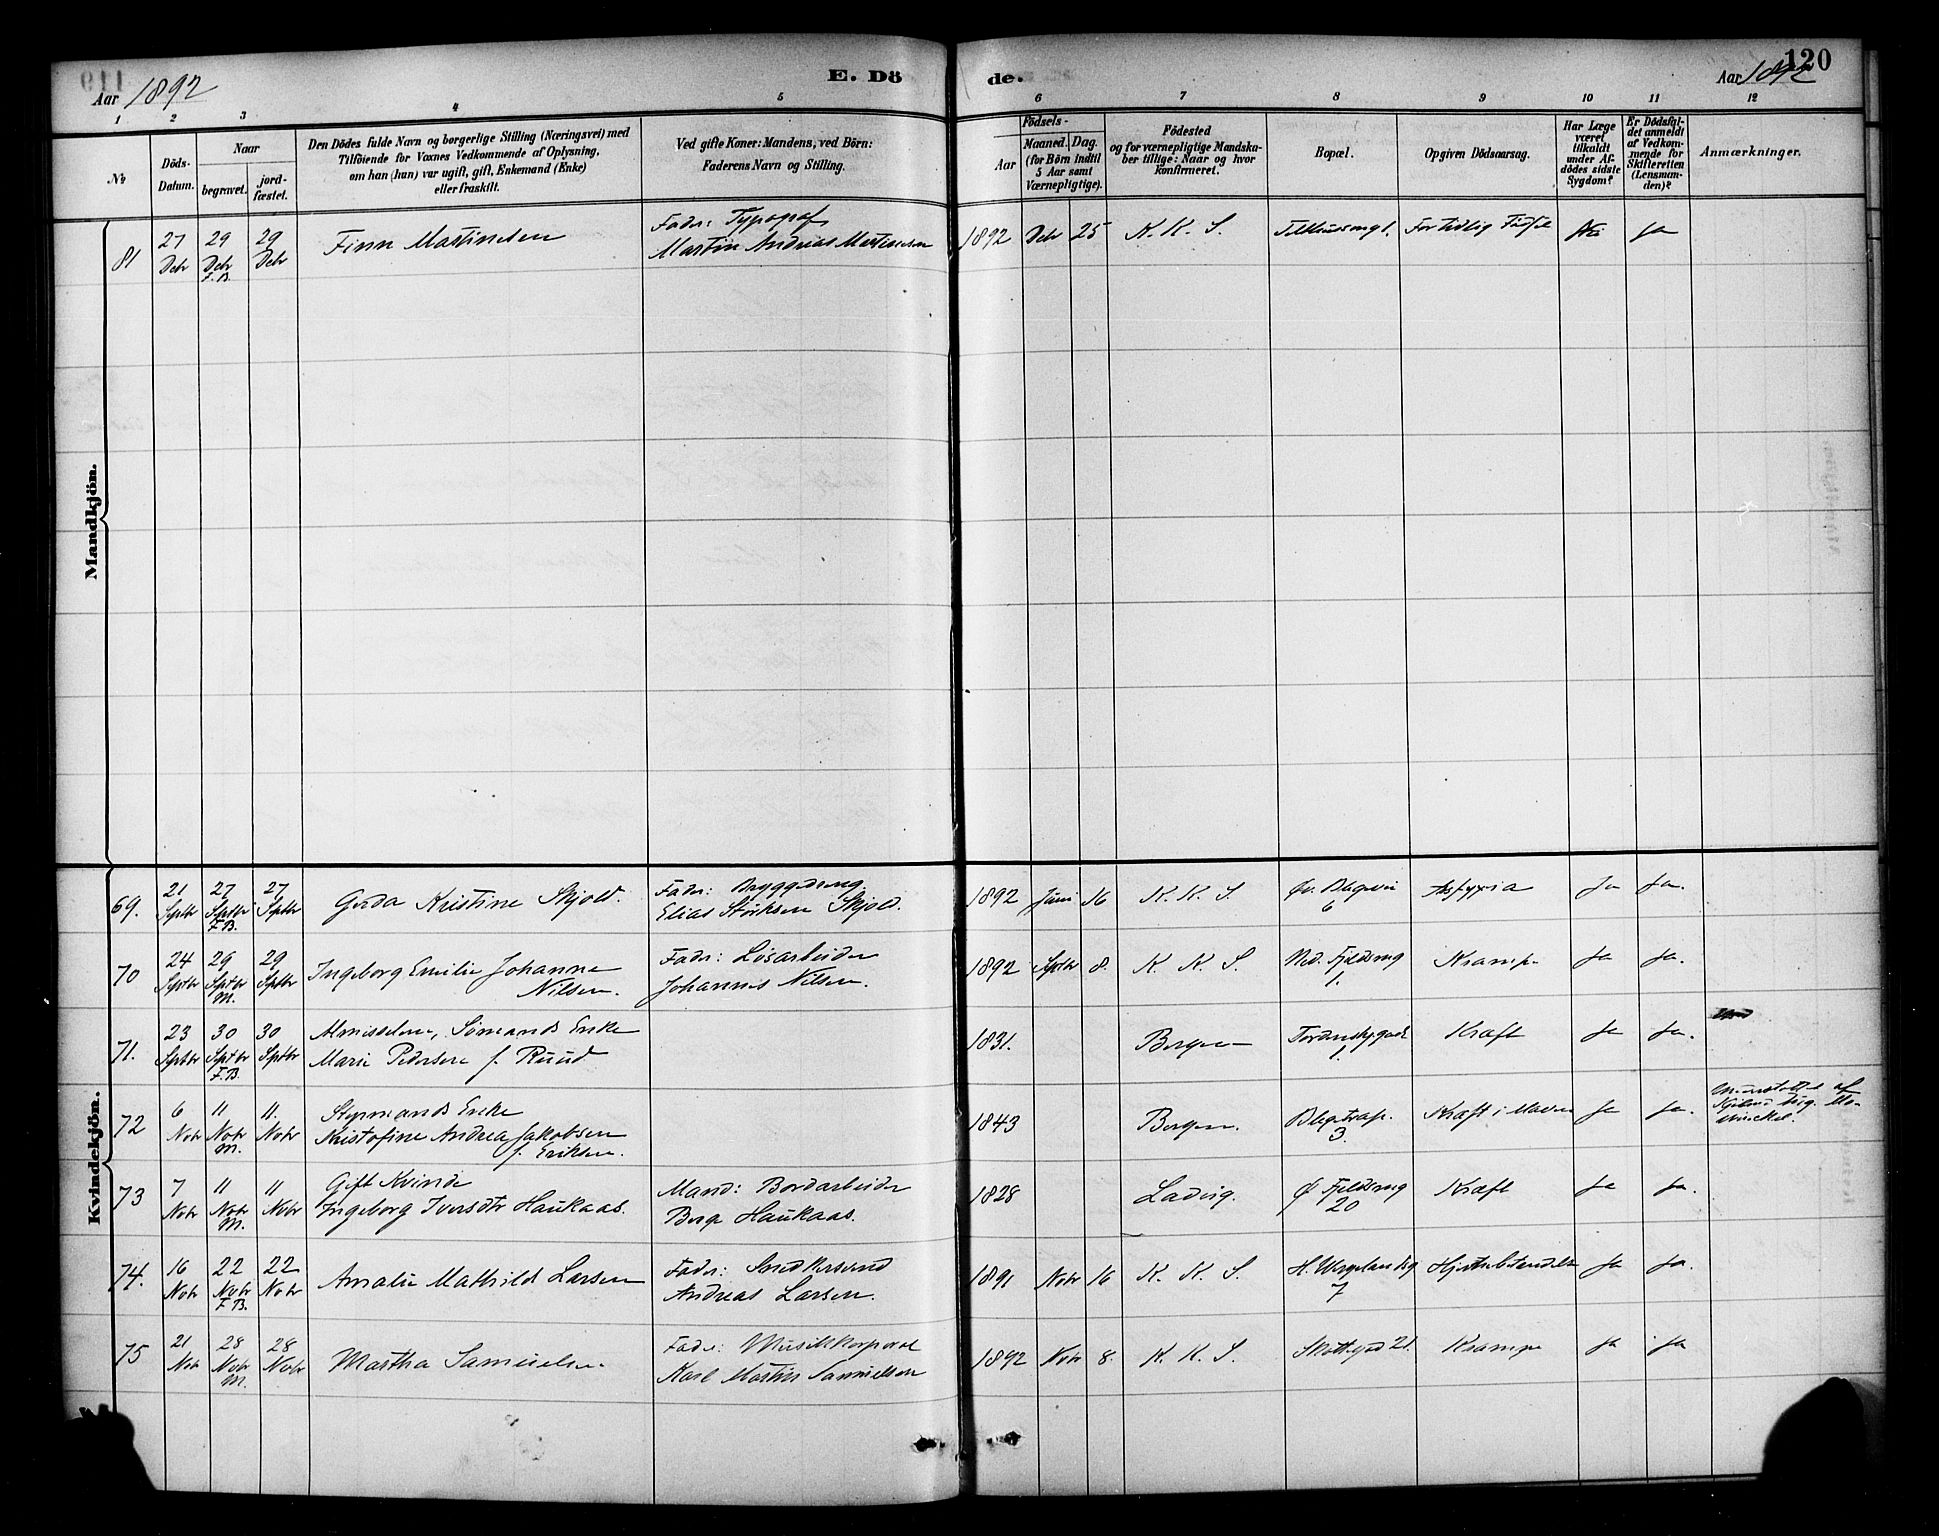 Aar 1892
E. Dö de.
120
Aar 1892
1 2 3 4 5 6 7 8 9 10 11 12
No
Döds-Datum.
Naar
begravet.
jord-fæstet.
Den Dödes fulde Navn og borgerlige Stilling (Næringsvei) med
Tilföiende for Voxnes Vedkommende af Oplysning,
om han (hun) var ugift, gift, Enkemand (Enke)
eller fraskilt.
Ved gifte Koner: Mandens, ved Börn:
Faderens Navn og Stilling.
Födsels-
Aar
Maaned. Dag.
(for Börn indtil
5 Aar samt
Værnepligtige).
Födested
og for værnepligtige Mandska-
ber tillige: Naar og hvor
konfirmeret.
Bopæl.
Opgiven Dödsaarsag.
Har Læge
været
tilkaldt
under Af-
dödes sidste
Sygdom?
Er Dödsfal-
det anmeldt
af Vedkom-
mende for
Skifteretten
(Lensman-
den)?
Anmærkninger.
Mandkjön.
81 27 Debr 29 Debr F. B. 29 Debr
Finn Martinsen
Fader: Typograf
Martin Andreas Martinsen
1892 Debr 25 K. K. S. For tidlig Födsel Nei Ja
Kvindekjön.
69. 21 Septbr 27 Septbr F. B. 27 Septbr
Gerda Kristine Skjold.
Fader: Bryggedreng
Elias Störksen Skjold.
1892 Juni 16 K. K. S. Øv. Blegevei 6 Asfyxia Ja Ja.
70 24 Septbr 29 Septbr M. 29 Septbr
Ingeborg Emilie Johanne
Nilsen.
Fader: Løsarbeider
Johannes Nilsen.
1892 Septbr 8. K. K. S. Ned. Fjeldsmug 1. Krampe Ja Ja.
71. 23 Septbr 30 Septbr F. B. 30 Septbr
Almisselem, Sømands Enke
Marie Pedersen f. Ruud
1831. Bergen 1. Kræft Ja Ja.
72 6 Nobr 11 Nobr M. 11. Nobr
Styrmands Enke
Kristofine Andrea Jakobsen
f. Eriksen.
1843 Bergen. 3. Kræft i Maven Ja Ja.
73 7 Nobr 11 Nobr M. 11 Nobr
Gift Kvinde
Ingeborg Iversdtr Haukaas.
Mand: Bordarbeider
Berge Haukaas.
1828 Ladvig. Ø Fjeldsmug 20 Kræft Ja Ja.
74. 16 Nobr 22 Nobr F. B. 22 Nobr
Amalie Mathilde Larsen
Fader: Snedkersvend
Andreas Larsen.
1891 Nobr 16 K. K. S. H. Wergelandsg 7 Ja Ja.
75 21 Nobr 28 Nobr M. 28 Nobr
Martha Samuelsen
Fader: Musikkorporal
Karl Martin Samuelsen
1892 Nobr 8. K. K. S. Skottegad 21. Krampe Ja Ja